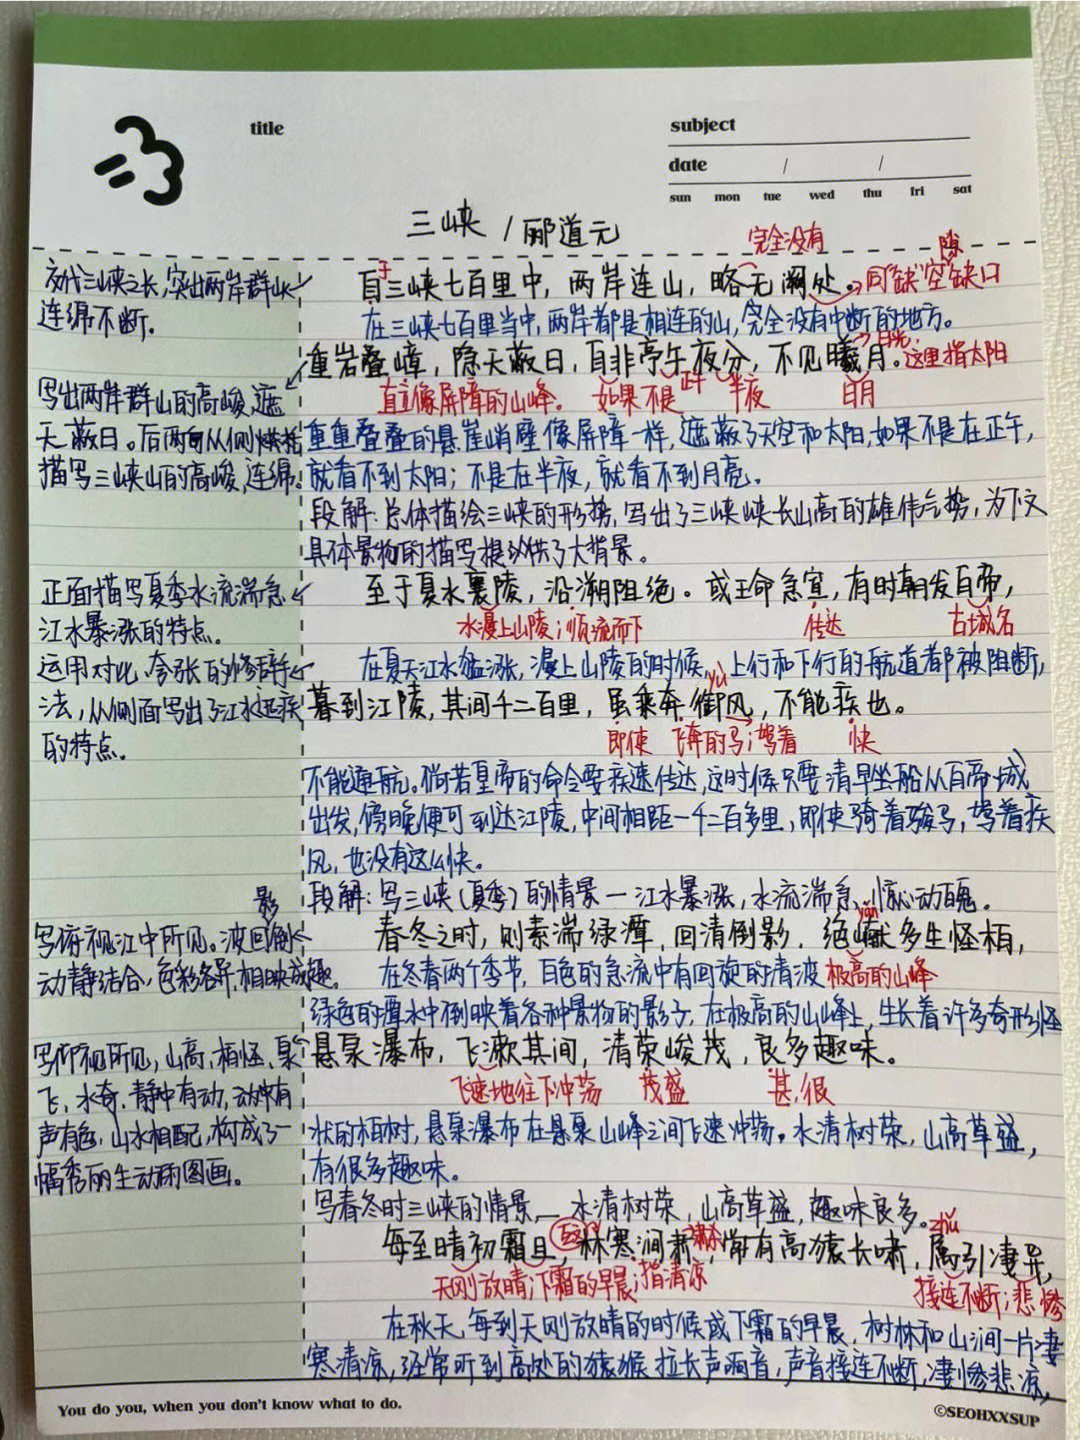 title
subject
date / /
sun mon tue wed thu fri sat
三峡 / 郦道元
完全没有
隙
交代三峡之长,突出两岸群山
连绵不断.
于
自三峡七百里中,两岸连山,略无阙处。
同"缺"空缺口
在三峡七百里当中,两岸都是相连的山,完全没有中断的地方。
重岩叠嶂,隐天蔽日,自非亭午夜分,不见曦月。
日光,
这里指太阳
直立像屏障的山峰。 如果不是 正午 半夜 日月
写出两岸群山的高峻,遮
天蔽日。后两句从侧烘托
描写三峡山的高峻,连绵。
重重叠叠的悬崖峭壁像屏障一样,遮蔽了天空和太阳,如果不是在正午,
就看不到太阳;不是在半夜,就看不到月亮。
段解:总体描绘三峡的形势,写出了三峡峡长山高的雄伟气势,为下文
具体景物的描写提供了大背景。
正面描写夏季水流湍急
江水暴涨的特点.
至于夏水襄陵,沿溯阻绝。或王命急宣,有时朝发白帝,
水漫上山陵;顺流而下 传达 古城名
运用对比、夸张的修辞手
法,从侧面写出了江水迅疾
的特点.
在夏天江水猛涨,漫上山陵的时候,上行和下行的航道都被阻断,
yù
暮到江陵,其间千二百里,虽乘奔御风,不能疾也。
即使 飞奔的马;驾着 快
不能通航。倘若皇帝的命令要疾速传达,这时候只要清早坐船从白帝城
出发,傍晚便可到达江陵,中间相距一千二百多里,即使骑着骏马,驾着疾
风,也没有这么快。
段解:写三峡(夏季)的情景—江水暴涨,水流湍急,惊心动魄。
影
写俯视江中所见。波回倒
动静结合,色彩各异,相映成趣。
yǎn
春冬之时,则素湍绿潭,回清倒影.绝巘多生怪柏,
在冬春两个季节,白色的急流中有回旋的清波
极高的山峰
绿色的潭水中倒映着各种景物的影子,在极高的山峰上,生长着许多奇形怪
写仰视所见,山高、柏怪、泉
飞、水奇.静中有动,动中有
声有色.山水相配,构成了一
幅秀丽生动的图画。
悬泉瀑布,飞漱其间,清荣峻茂,良多趣味。
飞速地往下冲荡 茂盛 甚,很
状的柏树,悬泉瀑布在悬泉山峰之间飞速冲荡。水清树荣,山高草盛,
有很多趣味。
写春冬时三峡的情景,—水清树荣,山高草盛,趣味良多。
zhǔ
每至晴初霜旦,林寒涧肃,常有高猿长啸,属引凄异,
天刚放晴;下霜的早晨;指清凉 接连不断;悲惨
在秋天,每到天刚放晴的时候或下霜的早晨,树林和山涧一片凄
寒清凉,经常听到高处的猿猴拉长声响音,声音接连不断,凄惨悲凉,
You do you, when you don't know what to do.
©SEOHXXSUP